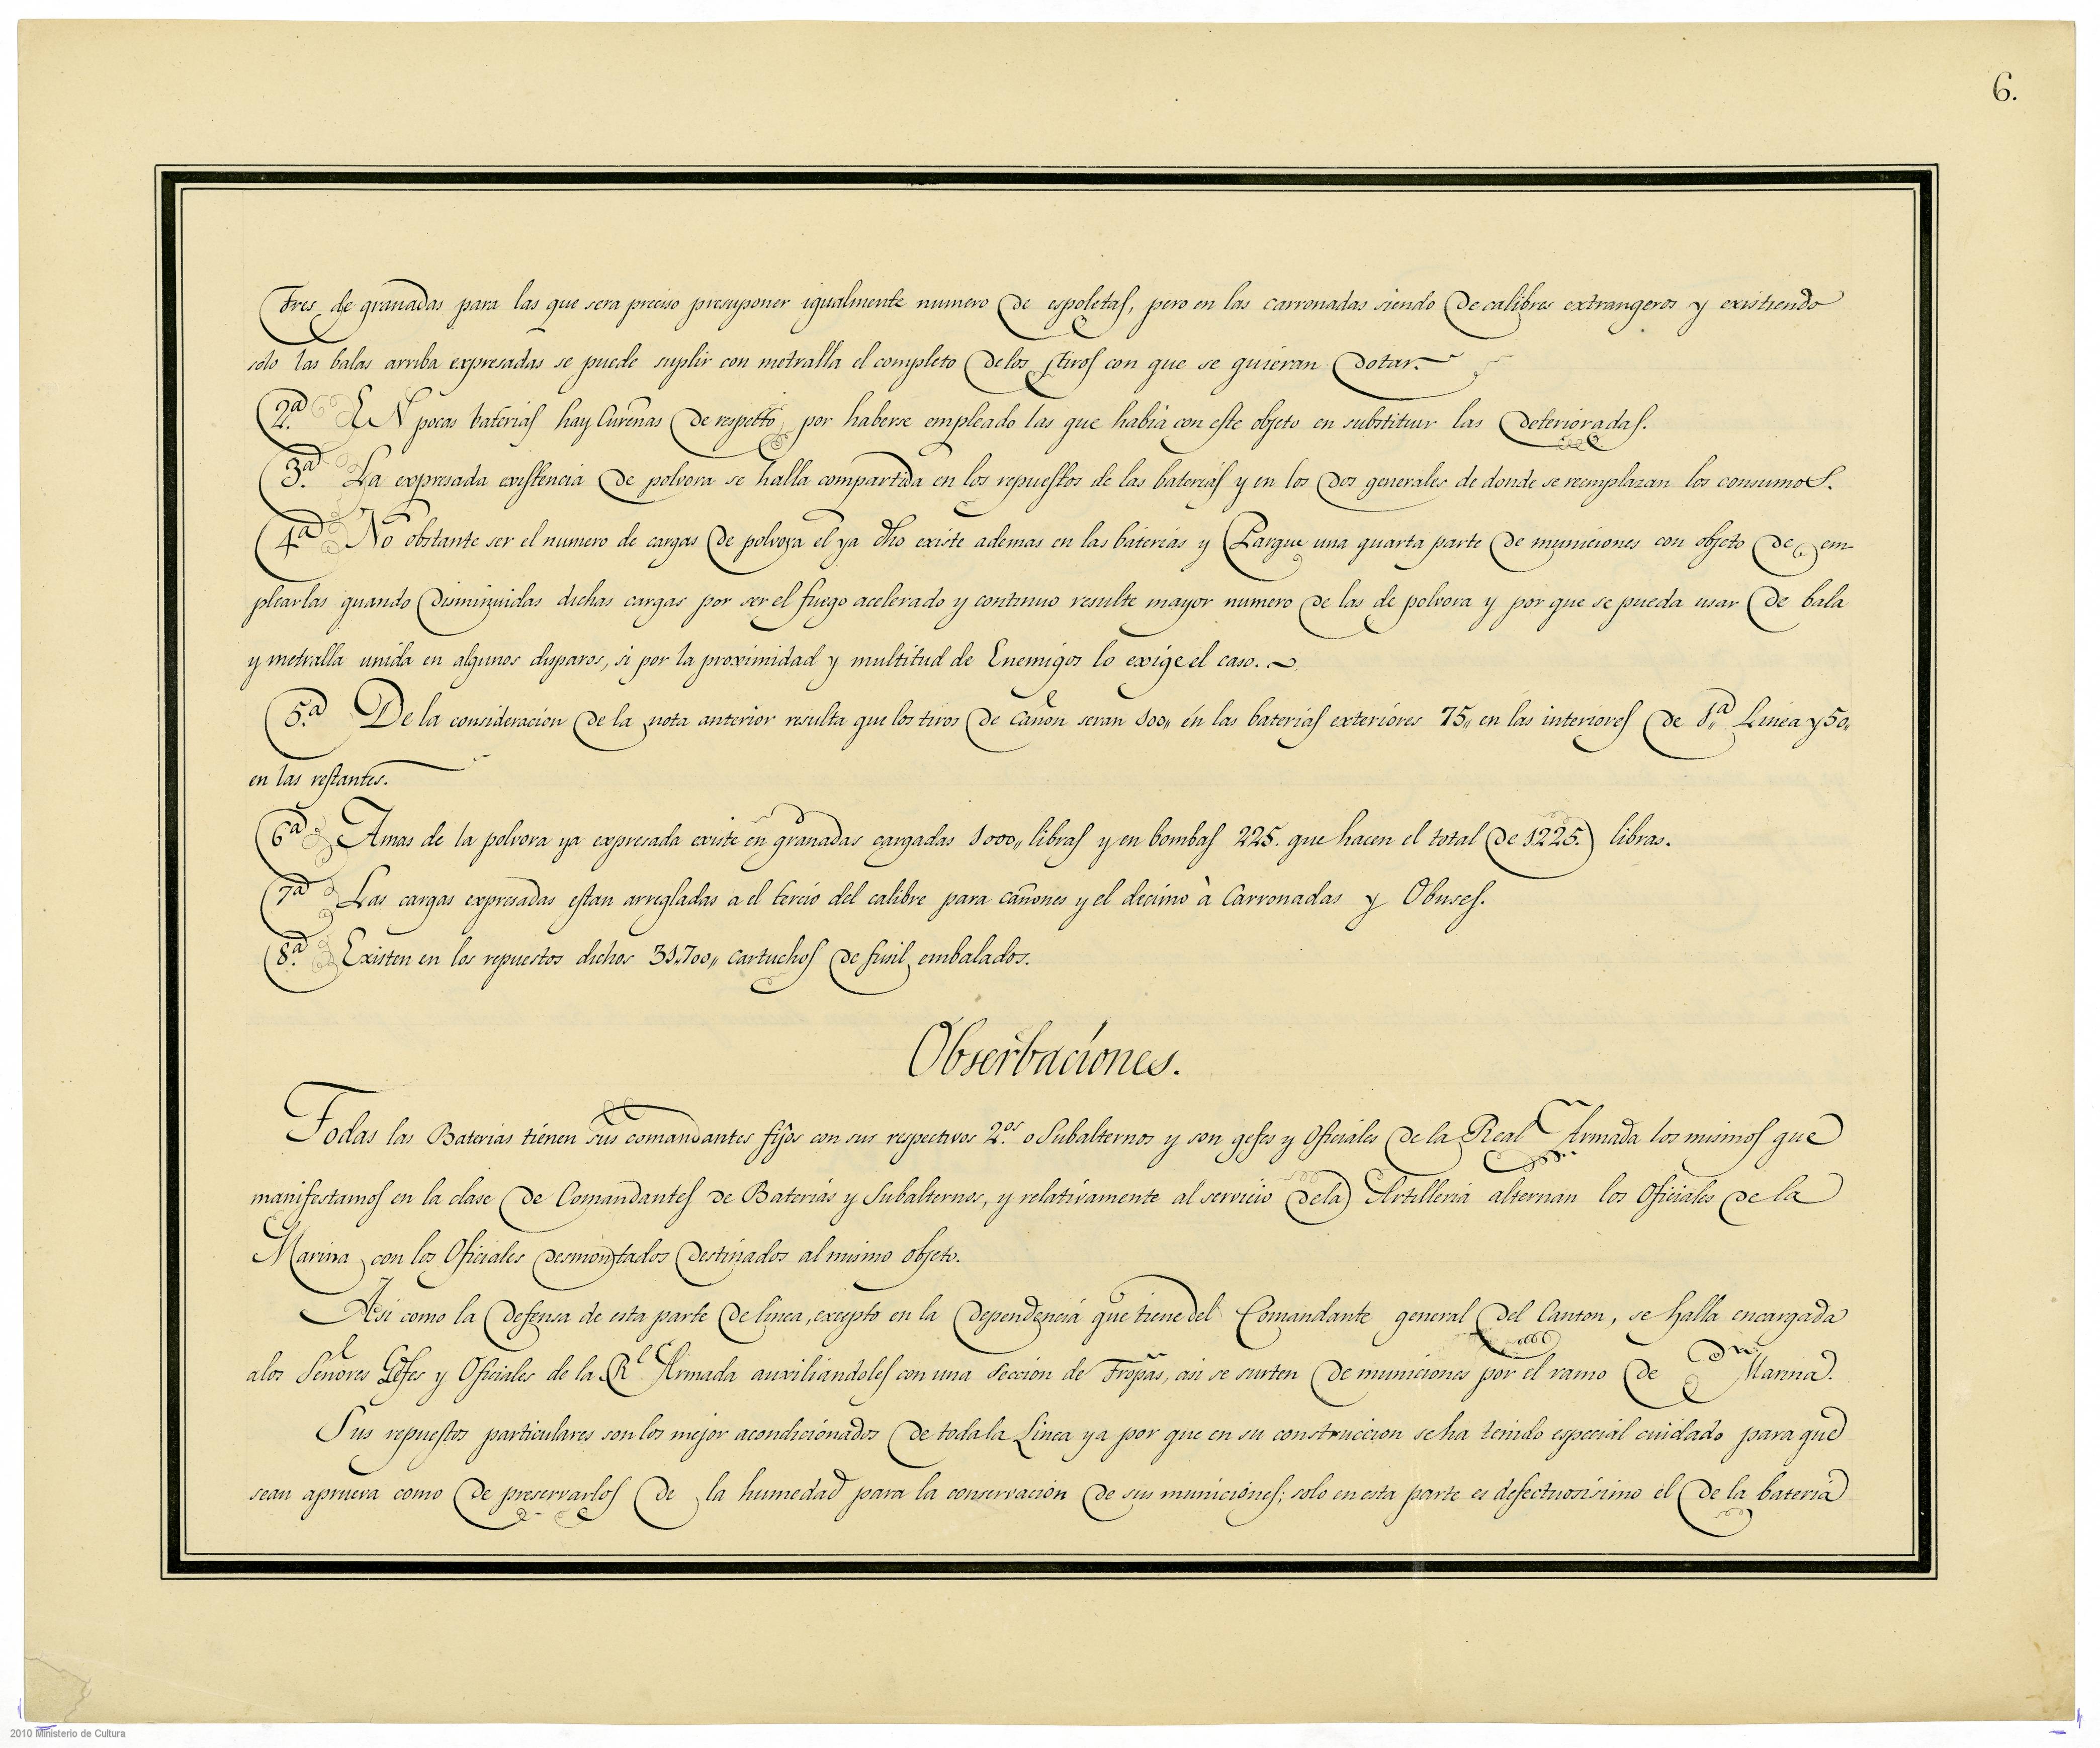 6.
tres de granadas para las que sera preciso presuponer igualmente numero de espoletas, pero en las carronadas siendo de calibres extrangeros y existiendo
solo las balas arriba expresadas se puede suplir con metralla el completo delos tiros con que se quieran dotar.
2.ª EN pocas baterias hay Cureñas de respetto por haberse empleado las que habia con este objeto en substituir las deterioradas.
3.ª La expresada existencia de polvora se halla compartida en los repuestos de las baterias y en los dos generales de donde se reemplazan los consumos.
4.ª No obstante ser el numero de cargas de polvora el ya dho existe ademas en las baterias y Parque una quarta parte de municiones con objeto de em
plearlas quando disminuidas dichas cargas por ser el fuego acelerado y continuo resulte mayor numero de las de polvora y por que se pueda usar de bala
y metralla unida en algunos disparos, si por la proximidad y multitud de Enemigos lo exige el caso.
5.ª De la consideracion de la nota anterior resulta que los tiros de Cañon seran 100,, en las baterias exteriores 75,, en las interiores de 1,,ª Linea y 50,,
en las restantes.
6.ª Amas de la polvora ya expresada existe en granadas cargadas 1000,, libras y en bombas 225. que hacen el total de 1225. libras.
7.ª Las cargas expresadas estan arregladas a el tercio del calibre para cañones y el decimo à Carronadas y Obuses.
8.ª Existen en los repuestos dichos 31.700,, cartuchos de fusil embalados.
Obserbaciones.
Todas las Baterias tienen sus comandantes fijos con sus respectivos 2.os o Subalternos y son gefes y Oficiales de la Real Armada los mismos que
manifestamos en la clase de Comandantes de Baterias y Subalternos, y relativamente al servicio dela Artilleria alternan los Oficiales de la
Marina con los Oficiales desmontados destinados al mismo objeto.
Asi como la defensa de esta parte de linea, excepto en la dependencia que tiene del Comandante general del Canton, se halla encargada
alos Señores Gefes y Oficiales de la Rl Armada auxiliandoles con una Seccion de Tropas, asi se surten de municiones por el ramo de Marina.
Sus repuestos particulares son los mejor acondicionados de toda la Linea ya por que en su construccion se ha tenido especial cuidado para que
sean aprueva como de preservarlos de la humedad para la conservacion de sus municiones; solo en esta parte es defectuosisimo el de la bateria
2010 Ministerio de Cultura